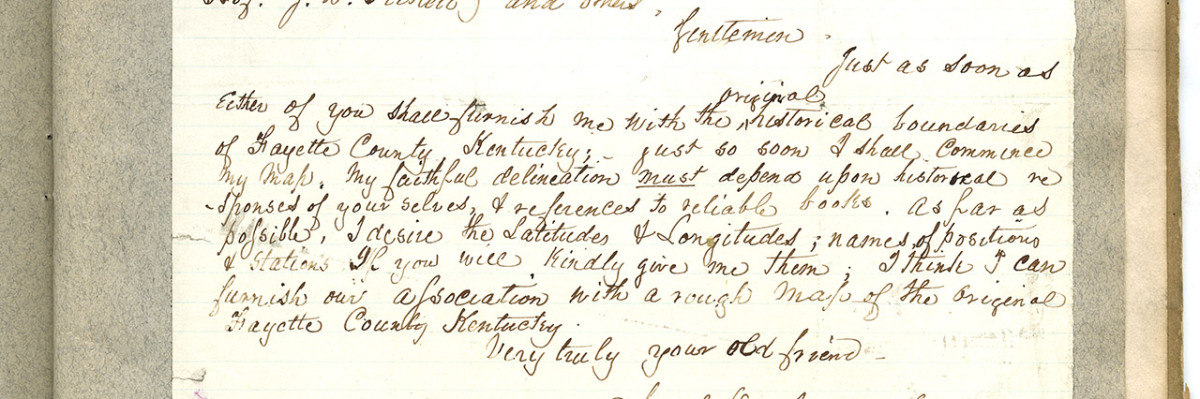 and others,
Gentlemen.
Just as soon as
original
Either of you shall furnish me with the ^ historical boundaries
of Fayette County, Kentucky; - just so soon I shall commence
My Map. My faithful delineation must depend upon historical re
-sponses of your selves, & references to reliable books. As far as
possible, I desire the Latitudes & Longitudes; names of positions
& stations If you will kindly give me them; I think I can
furnish our association with a rough Map of the original
Fayette County Kentucky.
Very truly your old friend -